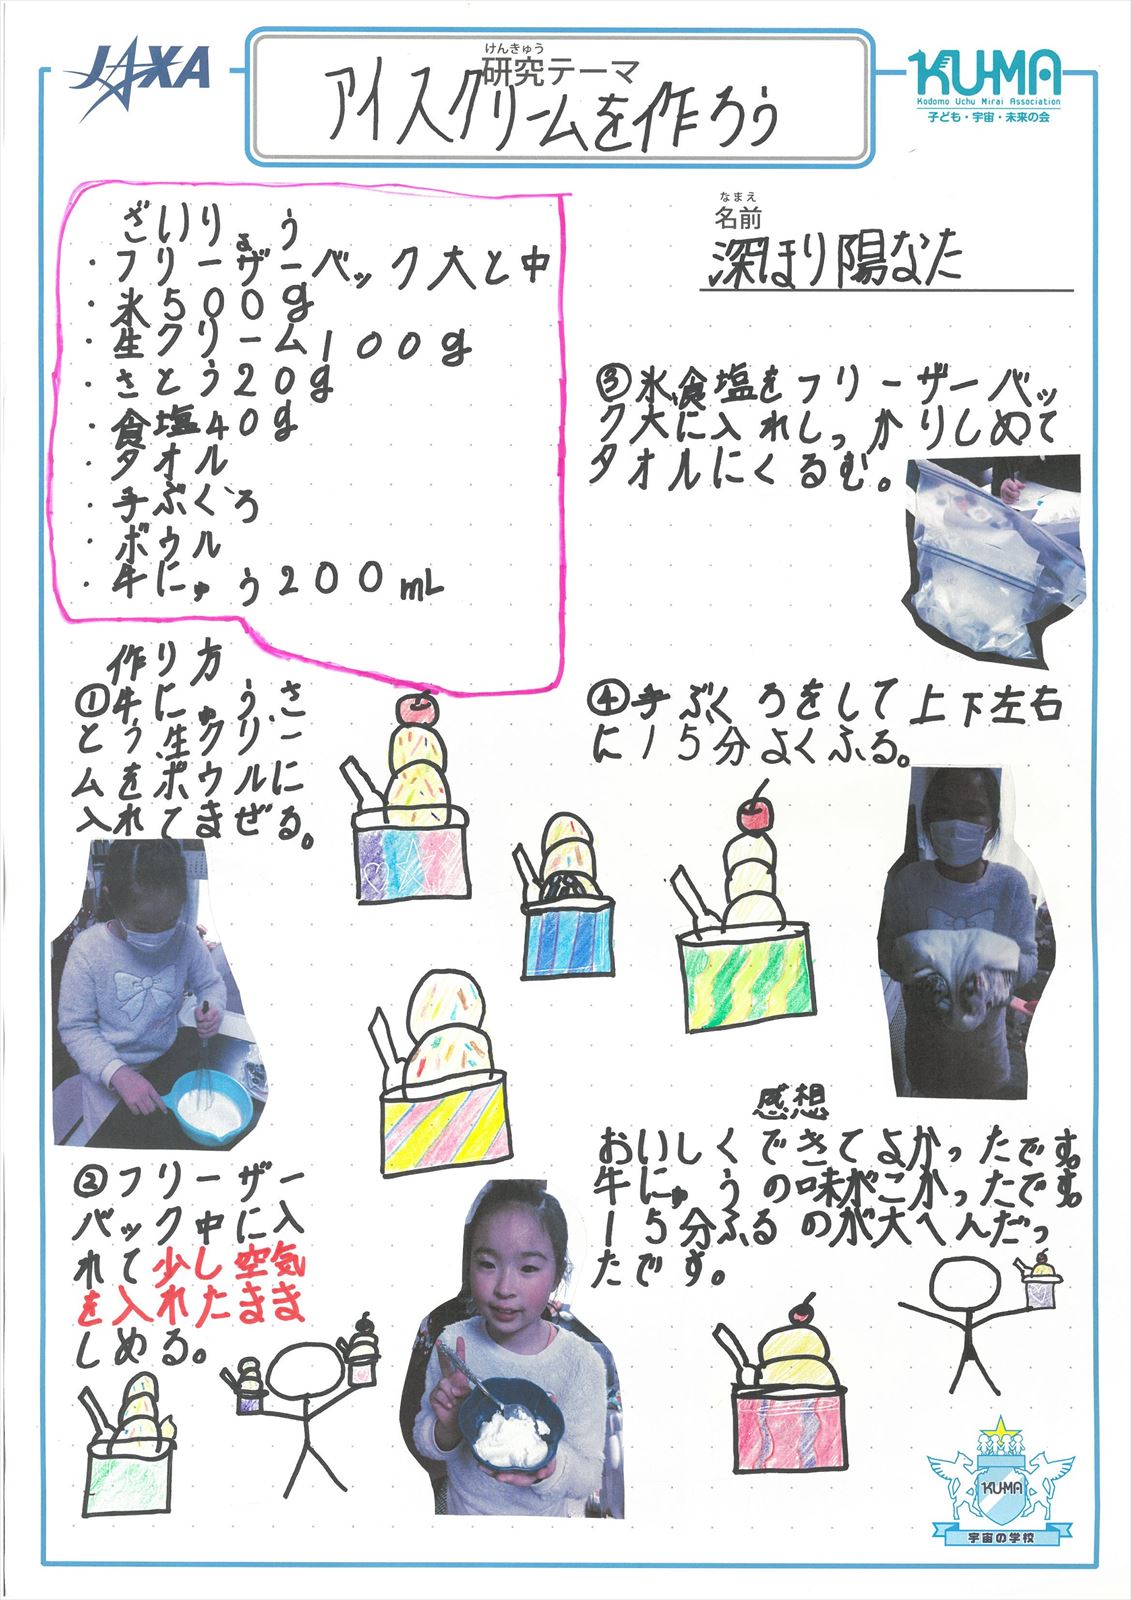 JAXA
けんきゅう
研究テーマ
アイスクリームを作ろう
KU-MA
Kodomo Uchu Mirai Association
子ども・宇宙・未来の会
なまえ
名前
深ほり陽なた
ざいりょう
・フリーザーバック大と中
・氷500g
・生クリーム100g
・さとう20g
・食塩40g
・タオル
・手ぶくろ
・ボウル
・牛にゅう200mL
作り方
①牛にゅう、さ
とう、生クリー
ムをボウルに
入れてまぜる。
②フリーザー
バック中に入
れて少し空気
を入れたまま
しめる。
③氷、食塩をフリーザーバッ
ク大に入れしっかりしめて
タオルにくるむ。
④手ぶくろをして上下左右
に15分よくふる。
感想
おいしくできてよかったです。
牛にゅうの味がこかったです。
15分ふるのが大へんだっ
たです。
KU-MA
宇宙の学校